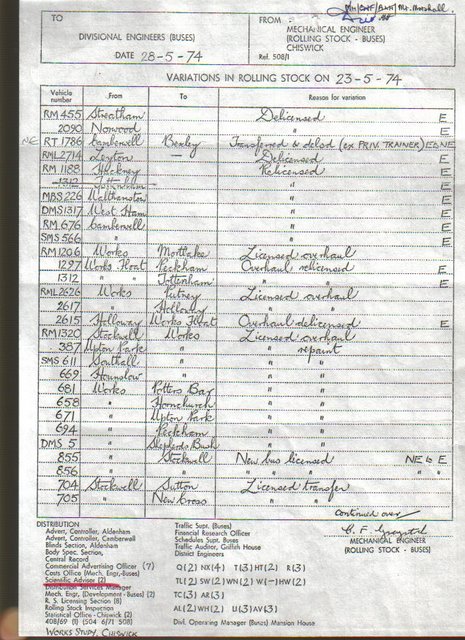 MH/CHF/BMK Mr. Marshall.
TO
DIVISIONAL ENGINEERS (BUSES)
DATE 28-5-74
FROM
MECHANICAL ENGINEER
(ROLLING STOCK - BUSES)
CHISWICK
Ref. 508/1
VARIATIONS IN ROLLING STOCK ON 23-5-74
Vehicle number From To Reason for variation
RM 455 Streatham Delicensed E
2090 Norwood " E
NE RT 1786 Camberwell Bexley Transferred & delsd (ex PRIV. TRAINER) E & NE
RML 2714 Leyton — Delicensed E
RM 1188 Hackney Relicensed E
1312 "
MBS 226 Walthamstow " E
DMS 1317 West Ham " E
RM 676 Camberwell " E
SMS 566 " " E
RM 1206 Works Mortlake Licensed overhaul
1297 Works Float Peckham Overhaul relicensed E
1312 " " Tottenham " " E
RML 2626 Works Putney Licensed overhaul
2617 " Holloway " "
2615 Holloway Works Float Overhaul delicensed E
RM 1320 Stockwell Works Licensed overhaul
387 Upton Park " " repaint
SMS 611 Southall " " "
669 Hounslow " " "
681 Works Potters Bar " "
658 " Hornchurch " "
671 " Upton Park " "
694 " Peckham " "
DMS 5 " Shepherds Bush " "
855 Stockwell New bus licensed NE to E
856 " " " " " "
704 Stockwell Sutton Licensed transfer
705 " New Cross " "
Continued over
MECHANICAL ENGINEER
(ROLLING STOCK - BUSES)
DISTRIBUTION
Advert. Controller, Aldenham
Advert. Controller, Camberwell
Blinds Section, Aldenham
Body Spec. Section,
Central Record
Commercial Advertising Officer (7)
Costs Office (Mech. Engr.-Buses)
Scientific Adviser (2)
Distribution Services Manager
Mech. Engr. (Development - Buses) (2)
R. S. Licensing Section (8)
Rolling Stock Inspection
Statistical Office - Chiswick (2)
408/69 (1) (504 6/71 508)
WORKS STUDY, CHISWICK
Traffic Supt. (Buses)
Financial Research Officer
Schedules Supt. Buses
Traffic Auditor, Griffith House
District Engineers
Q (2) NX (4) T (3) HT (2) R (3)
TL (2) SW (2) WN (2) W (-) HW (2)
TC (3) AR (3)
AL (2) WH (2) U (3) AV (3)
Divl. Operating Manager (Buses) Mansion House